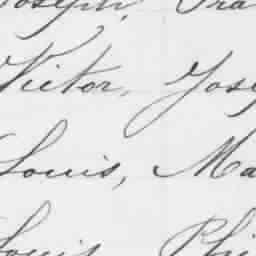 Joseph, Fra
Victor, Jose
Louis, Ma
Louis Phi